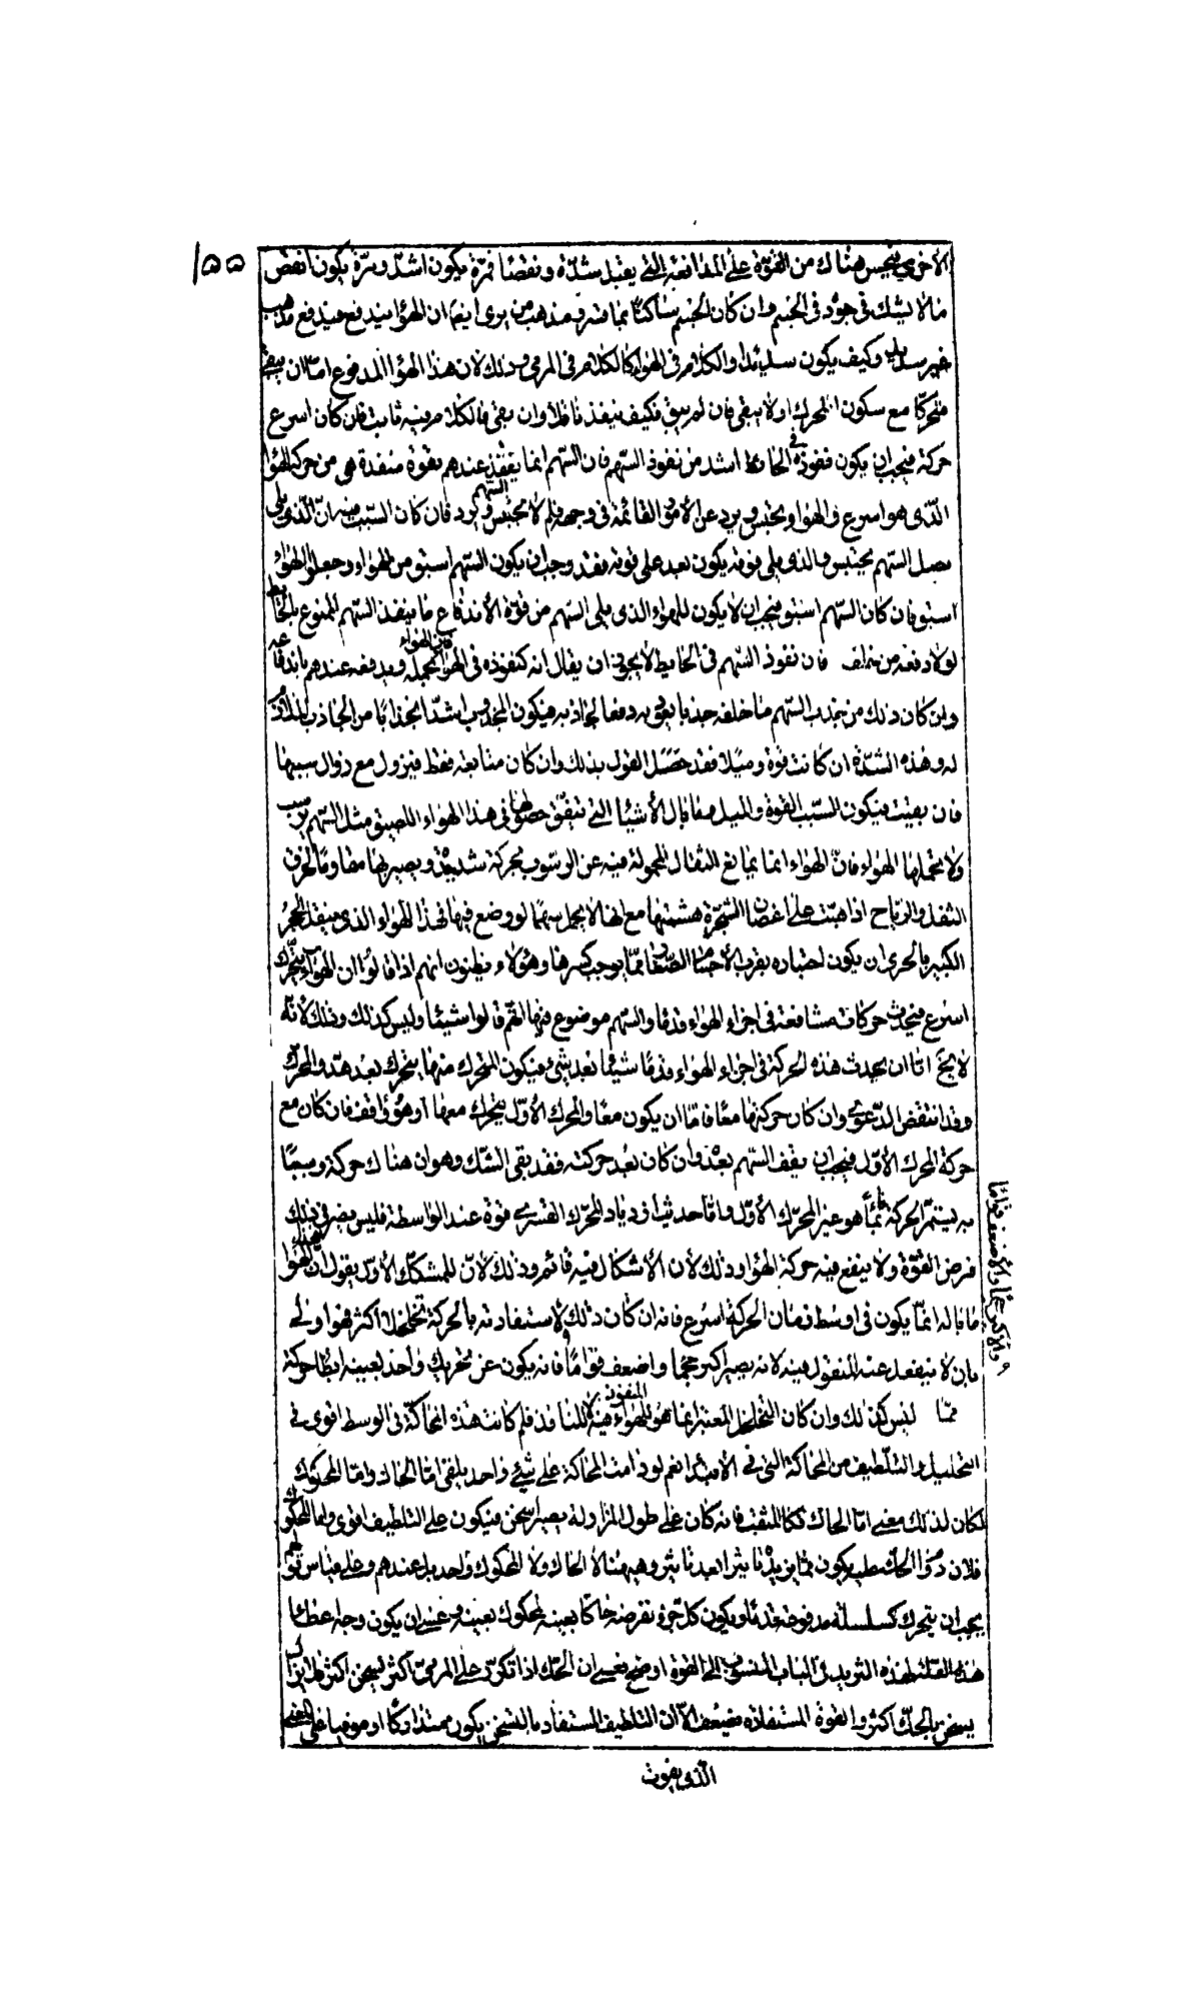 ١٥٥
الأخرى فيحس هناك من القوة على المدافعة التي يقبل شدة ونقصا فمرة يكون اشد ومرة يكون انقص
مما لا يشك فى وجوده فى الجسم وان كان الجسم ساكنا بما قسر ومذهب من يرى ايضا ان الهواء يندفع فيدفع مذهب
غير سديد وكيف يكون سديدا والكلام فى الهواء كالكلام فى المرمى وذلك لان هذا الهواء المدفوع اما ان يبقى
متحركا مع سكون المحرك او لا يبقى فان لم يبق فكيف ينفذ ناقلا وان بقى فالكلام فيه ثابت فان كان اسرع
حركة فيجب ان يكون نفوذه فى الحائط اشد من نفوذ السهم فان السهم انما ينفذ عندهم بقوة منفذة هى من حركة الهواء
الذى هو اسرع والهواء يحتبس ويرد عن الأمور القائمة فى وجهه فلم لا يحتبس السهم ويرد فان كان السبب فيه ان الذى يلى
نصل السهم يحتبس والذى يلى فوقه يكون بعد على قوته فقد وجب ان يكون السهم اسبق من الهواء وجعلوا الهواء
اسبق فان كان السهم اسبق فيجب ان لا يكون للهواء الذى يلى السهم من قوة الأندفاع ما ينفذ السهم الممنوع بالحائط
لولا دفعه من خلف فان نفوذ السهم فى الحائط لا يجوز ان يقال انه كنفوذه فى الهواء فان الهواء يحمله ويدفعه عندهم باندفاعه
وان كان ذلك من جذب السهم ما خلفه جذبا ينقلب به دفعا لجاذبه فيكون المجذوب اشد انجذابا من الجاذب الملازم
له وهذه الشدة ان كانت قوة وميلا فقد حصل القول بذلك وان كان متابعة فقط فيزول مع زوال سببها
فان بقيت فيكون السبب القوة والميل فما بال الأشياء التى يتفق حصولها فى هذا الهواء اللصيق مثل السهم يرسب
ولا يحملها الهواء فان الهواء انما يمانع الثقال المحمولة فيه عن الرسوب بحركة شديدة ويصير بها مقاوما لخرق
الثقل والرياح اذا هبت على اغصان الشجرة هشمتها مع انها لا يحمل سهما لو وضع فيها فهذا الهواء الذى ينقل الحجر
الكبير بالحرى ان يكون اجتيازه بقرب الأجسام الصغار مما يوجب كسرها وهؤلاء يظنون انهم اذا قالوا ان الهواء يتحرك
اسرع فيحدث حركات متشافعة فى اجزاء الهواء قدما والسهم موضوع فيها انهم قالوا شيئا وليس كذلك وذلك لأنه
لا يخ اما ان يحدث هذه الحركة فى اجزاء الهواء قدما شيئا بعد شئ فيكون المتحرك منها يتحرك بعد هدو المحرك
وقد انتقض الدعوى وان كان حركتها معا فاما ان يكون معا والمحرك الأول يتحرك معها او هو واقف فان كان مع
حركة المحرك الأول فيجب ان يقف السهم بعده وان كان بعد حركته فقد بقى الشك وهو ان هناك حركة وسببا
به يستمر الحركة ثابتا هو غير المحرك الأول واما حديث ازدياد المحرك القسرى قوة عند الواسطة فليس يضر فى ذلك
فرض القوة ولا ينفع فيه حركة الهواء وذلك لأن الأشكال فيه قائم وذلك لأن للمشكك الأول يقول ان هذا الهواء
ما باله انما يكون فى اوسط زمان الحركة اسرع فانه ان كان ذلك لاستفادته بالحركة تخلخلا اكثر فهو اولى
بان لا ينفعل عنه المنقول فيه لانه يصير اكبر حجما واضعف قواما فانه يكون عن تحريك واحد بعينه ابطأ حركة
مما ليس كذلك وان كان التخلخل المعتبر انما هو للهواء المنفوذ فيه لا للنافذ فلم كانت هذه المحاكة فى الوسط اقوى فى
التحليل والتلطيف من المحاكة التى فى الأبتداء نعم لو دامت المحاكة على شئ واحد يلقى اما الحاك واما المحكوك
لكان لذلك معنى اما الحاك فكالمثقب فانه كان على طول المزاولة يصير اسخن فيكون على التلطيف اقوى واما المحكوك
فلان دوام الحك عليه يكون مما يزيده تاثيرا بعد تاثير وهيهنا لا الحاك ولا المحكوك واحد بل عندهم وعلى قياس قولهم
يجب ان يتحرك كسلسلة مدفوعة قدما ويكون كل جزء نفرضه حاكا بعينه لمحكوك بعينه وعسى ان يكون وجه اعطاء
هذه العلة لهذا التزيد فى الباب المنسوب الى القوة اوضح فعسى ان الحك اذا تكرر على المرمى اكثر تسخن اكثر فلا يزال
يسخن بالحك اكثر والقوة المستفادة تضعف الا ان التلطيف المستفاد بالتسخن يكون متداركا او موفيا على الضعف
الذى يفوت